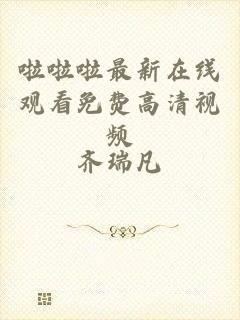 啦啦啦最新在线
观看免费高清视
频
齐瑞凡